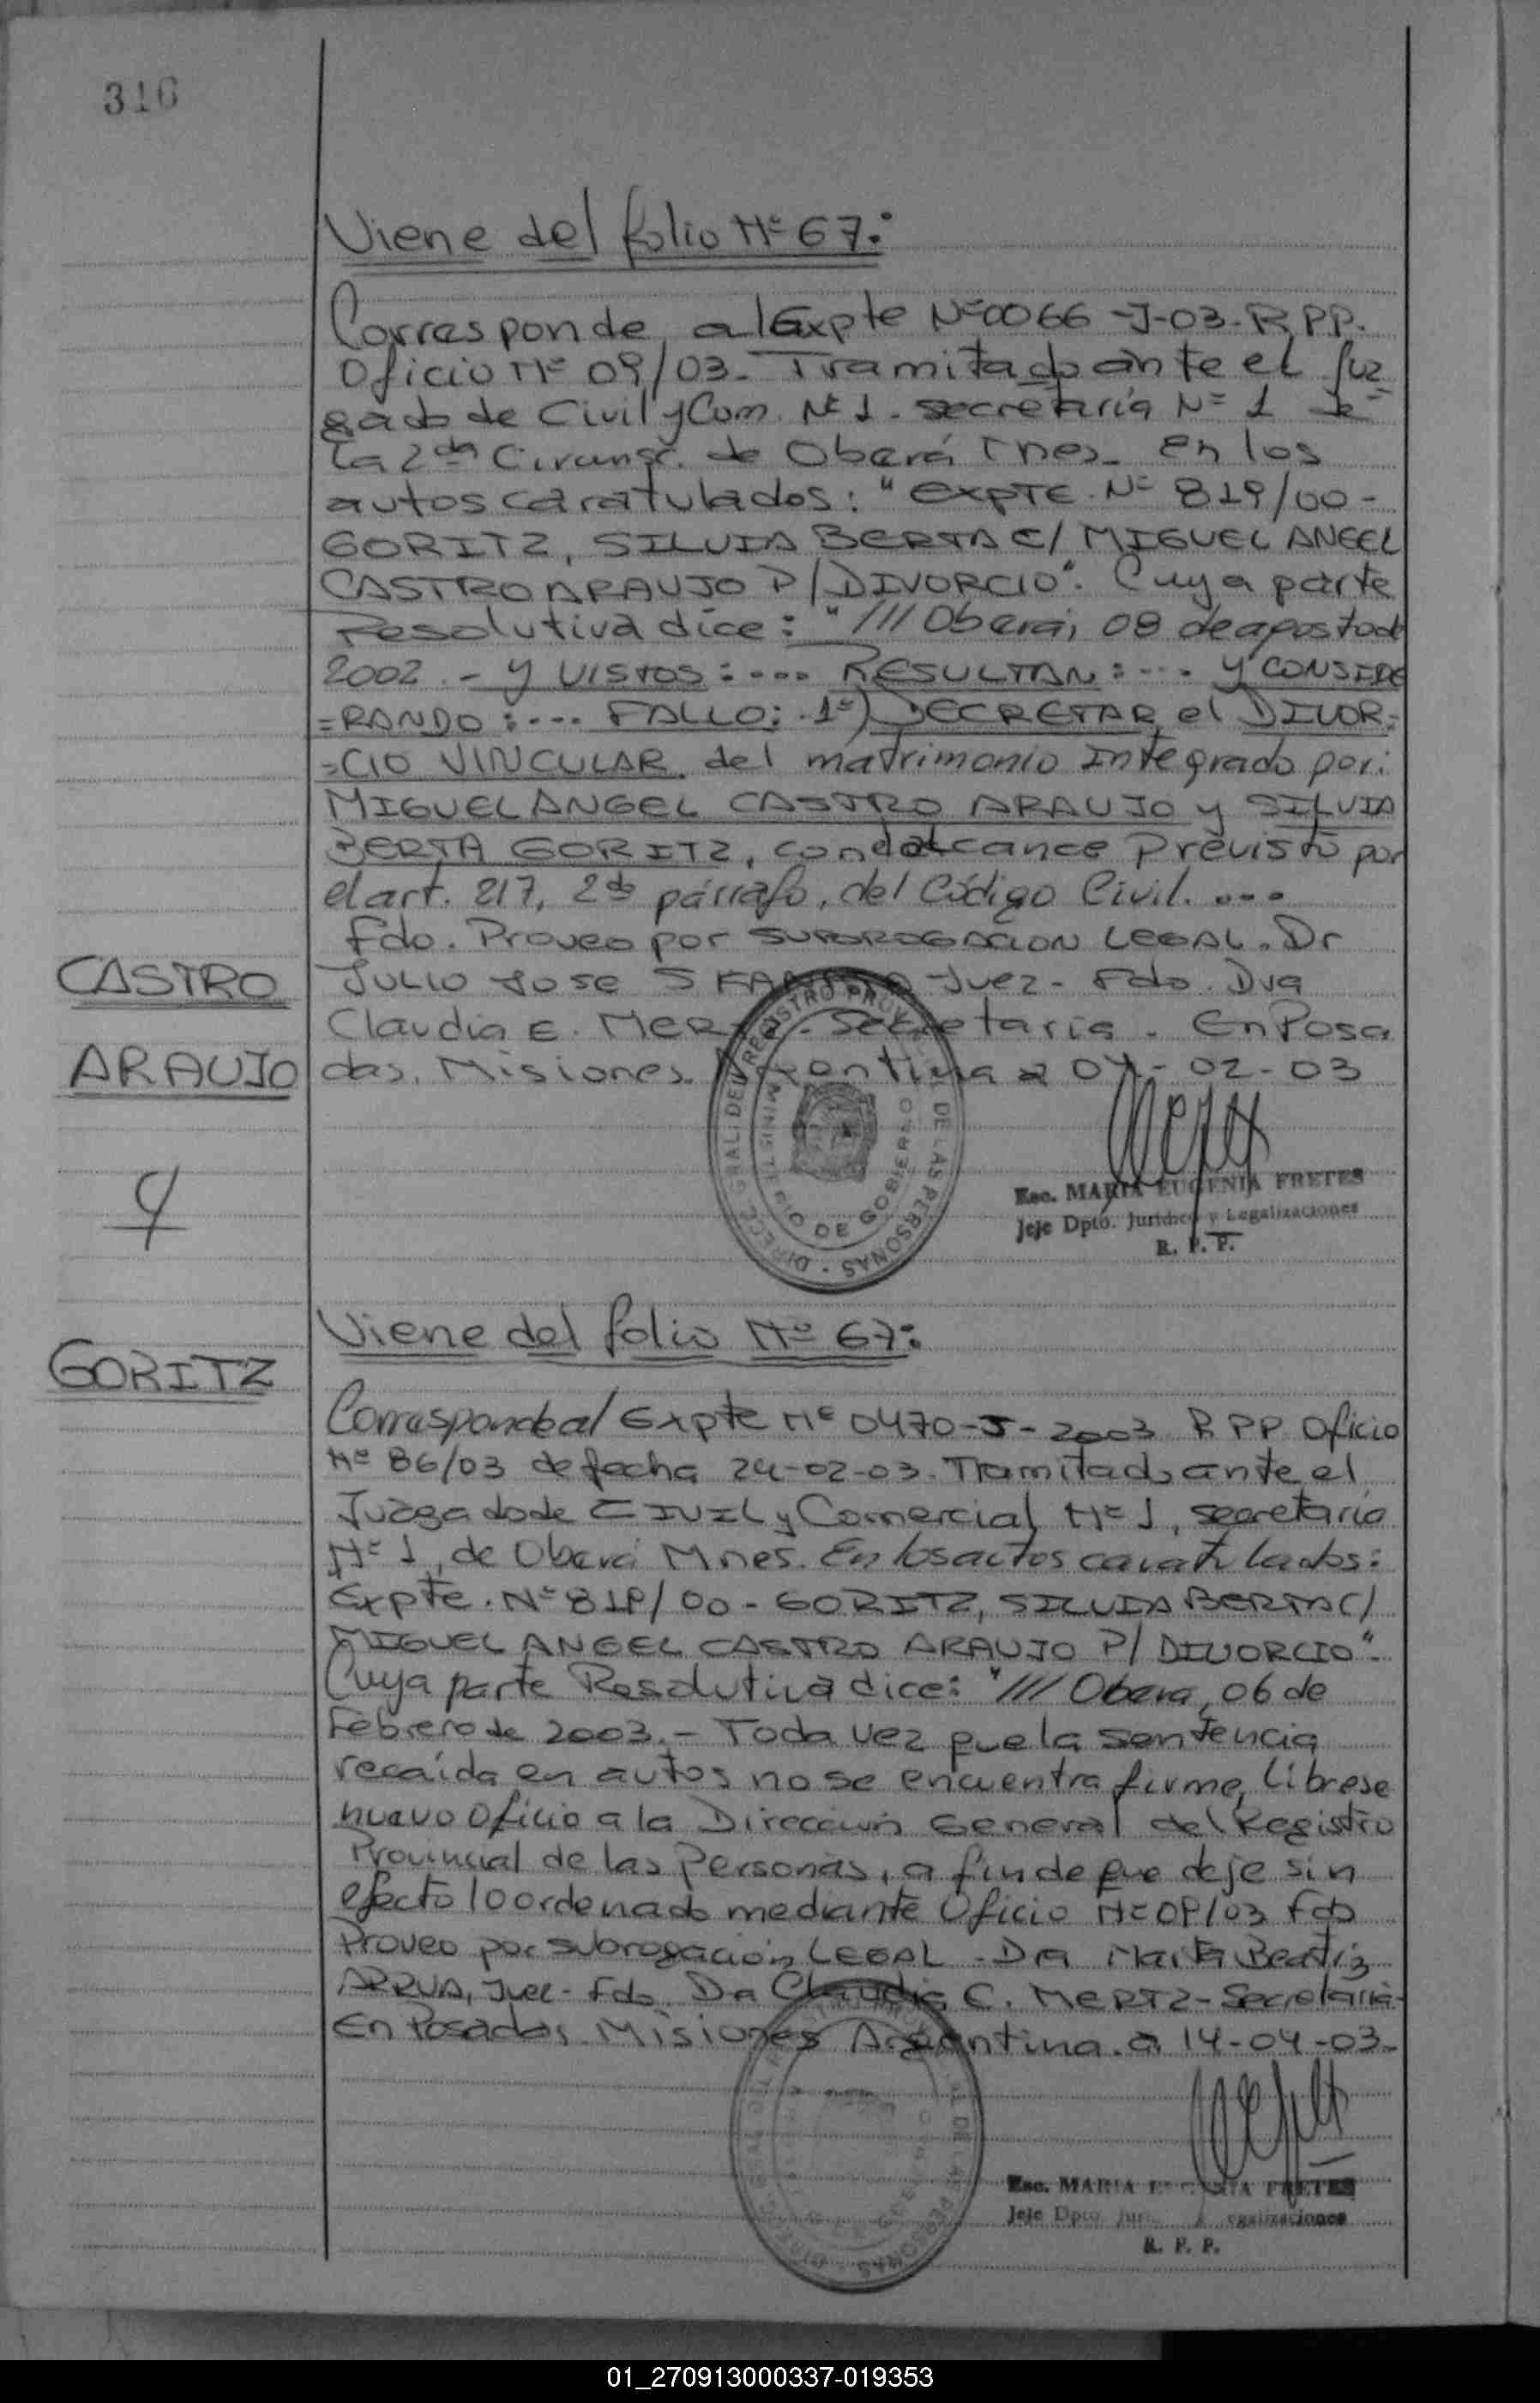 316
Viene del folio Nº 67:
Corresponde al Expte Nº 0066-J-03-R.P.P.
Oficio Nº 09/03. Tramitado ante el Juz
gado de Civil y Com. Nº 1. secretaría Nº 1 de
la 2da Circunsc. de Oberá Mnes. en los
autos caratulados: "EXPTE. Nº 819/00 -
GORITZ, SILVIA BERTA C/ MIGUEL ANGEL
CASTRO ARAUJO P/ DIVORCIO". Cuya parte
Resolutiva dice: "/// Oberá, 08 de agosto de
2002. - Y VISTOS: .... RESULTAN: .... Y CONSIDE
=RANDO: .... FALLO: 1º) DECRETAR el DIVOR=
=CIO VINCULAR del matrimonio Integrado por:
MIGUEL ANGEL CASTRO ARAUJO y SILVIA
BERTA GORITZ, con el alcance Previsto por
el art. 217, 2do párrafo, del Código Civil. ....
Fdo. Proveo por SUBROGACION LEGAL. Dr
CASTRO
JULIO JOSE Juez - Fdo. Dra
Claudia E. MERTZ - Secretaria. En Posa
ARAUJO
das, Misiones. Argentina a 04-02-03
DIRECC. GRAL. DEL REGISTRO PROVINCIAL DE LAS PERSONAS
MINISTERIO DE GOBIERNO
Y
Esc. MARIA EUGENIA FRETES
Jefe Dpto. Jurídico y Legalizaciones
R. P. P.
Viene del folio Nº 67:
GORITZ
Corresponde al Expte Nº 0470-J-2003 R.P.P. Oficio
Nº 86/03 de fecha 24-02-03. Tramitado ante el
Juzgado de CIVIL y Comercial Nº 1, secretaría
Nº 1, de Oberá Mnes. En los autos caratulados:
Expte. Nº 819/00 - GORITZ, SILVIA BERTA C/
MIGUEL ANGEL CASTRO ARAUJO P/ DIVORCIO".
Cuya parte Resolutiva dice: "/// Oberá, 06 de
Febrero de 2003. - Toda vez que la sentencia
recaída en autos no se encuentra firme, Líbrese
nuevo Oficio a la Dirección General del Registro
Provincial de las Personas, a fin de que deje sin
efecto lo ordenado mediante Oficio Nº 09/03 Fdo
Proveo por subrogación LEGAL - Dra Marta Beatriz
ARRUA, Juez - Fdo. Dra Claudia E. MERTZ - Secretaria -
En Posadas Misiones Argentina. a 14-04-03-
Esc. MARIA EUGENIA FRETES
Jefe Dpto. Jurídico y Legalizaciones
R. P. P.
01_270913000337-019353